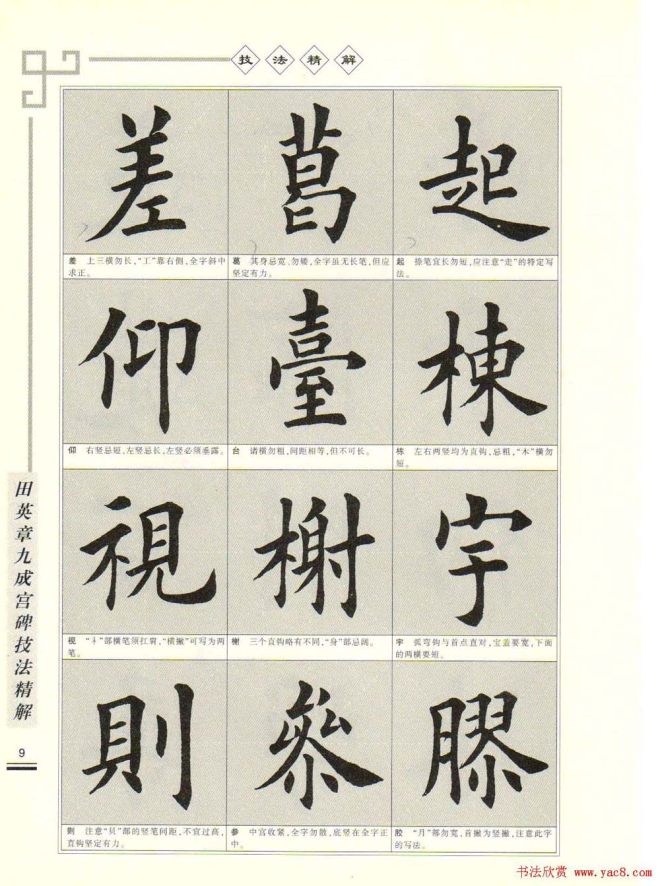 技法精解
差 葛 起
差 上三横勿长，“工”靠右侧，全字斜中
求正。
葛 其身忌宽、勿矮，全字虽无长笔，但应
坚定有力。
起 捺笔宜长勿短，应注意“走”的特定写
法。
仰 臺 棟
仰 右竖忌短，左竖忌长，左竖必须垂露。
台 诸横勿粗，间距相等，但不可长。
栋 左右两竖均为直钩，忌粗，“木”横勿
短。
視 榭 宇
视 “礻”部横笔须扛肩，“横撇”可写为两
笔。
榭 三个直钩略有不同，“身”部忌阔。
宇 弧弯钩与首点直对，宝盖要宽，下面
的两横要短。
則 叅 膠
则 注意“贝”部的竖笔间距，不宜过高，
直钩坚定有力。
参 中宫收紧，全字勿散，底竖在全字正
中。
胶 “月”部勿宽，首撇为竖撇，注意此字
的写法。
田英章九成宫碑技法精解
9
书法欣赏 www.yac8.com